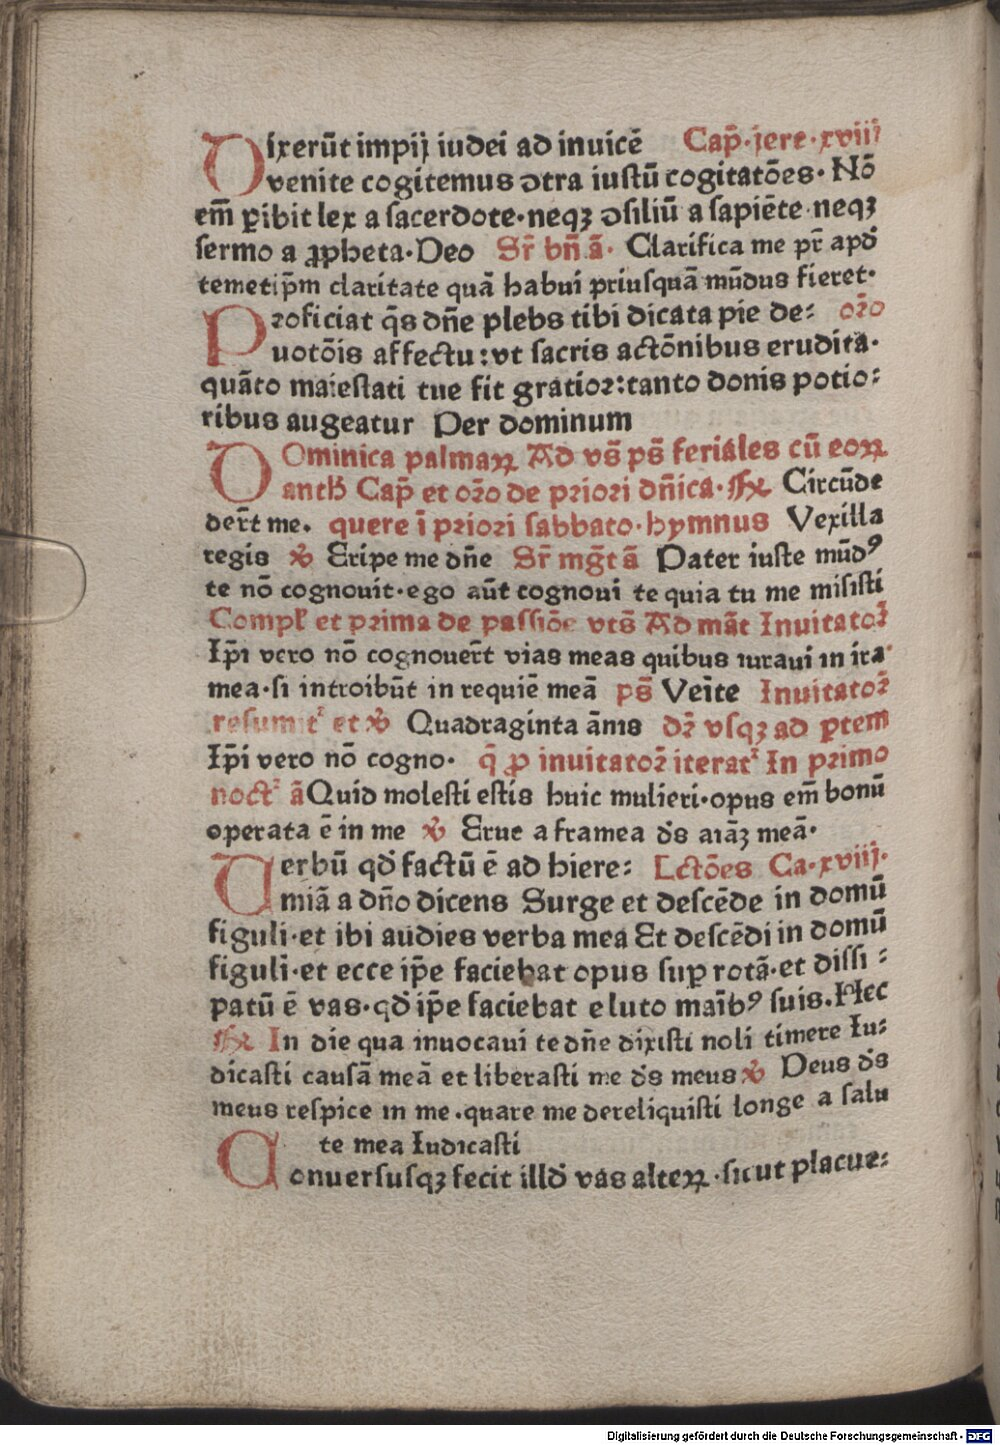 Dixerūt impij iudei ad inuicē Cap̄·jere·xviij
venite cogitemus ↄtra iustū cogitatōes· Nō
em̄ ꝑibit lex a sacerdote·neqꝫ ↄsiliū a sapiēte·neqꝫ
sermo a ꝓpheta·Deo Sr̄ bn̄ ā· Clarifica me pr̄ apd̄
temetip̄m claritate quā habui priusquā mūdus fieret·
Proficiat q̄s dn̄e plebs tibi dicata pie de: or̄o
uotōis affectu:vt sacris actōnibus erudita·
quāto maiestati tue fit gratior:tanto donis potio:
ribus augeatur Per dominum
DOminica palmaꝝ Ad vs̄ ps̄ feriales cū eoꝝ
anth̄ Cap̄ et or̄o de priori dn̄ica· ℟ Circūde
der̄t me. quere ī priori sabbato·hymnus Vexilla
regis ℣ Eripe me dn̄e Sr̄ mḡt ā Pater iuste mūdꝰ
te nō cognouit·ego aūt cognoui te quia tu me misisti
Compl̄ et prima de passiōe vts̄ Ad māt Inuitator̄
Ip̄i vero nō cognouer̄t vias meas quibus iuraui in ira
mea·si introibūt in requiē meā ps̄ Veīte Inuitator̄
resumit᷑ et ℣ Quadraginta ānis dr̄ vsqꝫ ad ꝑtem
Ip̄i vero nō cogno· q̄ ꝓ inuitator̄ iterat᷑ In primo
noct᷑ ā Quid molesti estis huic mulieri·opus em̄ bonū
operata ē in me ℣ Erue a framea ds̄ aīaꝫ meā·
Uerbū qd̄ factū ē ad hiere: Lctōes Ca·xviij·
miā a dn̄o dicens Surge et descēde in domū
figuli·et ibi audies verba mea Et descēdi in domū
figuli·et ecce ip̄e faciebat opus suꝑ rotā·et dissi:
patū ē vas·qd̄ ip̄e faciebat e luto maībꝰ suis. Hec
℟ In die qua inuocaui te dn̄e dixisti noli timere Iu:
dicasti causā meā et liberasti me ds̄ meus ℣ Deus ds̄
meus respice in me·quare me dereliquisti longe a salu
te mea Iudicasti
Conuersusqꝫ fecit illd̄ vas alteꝝ·sicut placue:
Digitalisierung gefördert durch die Deutsche Forschungsgemeinschaft - DFG